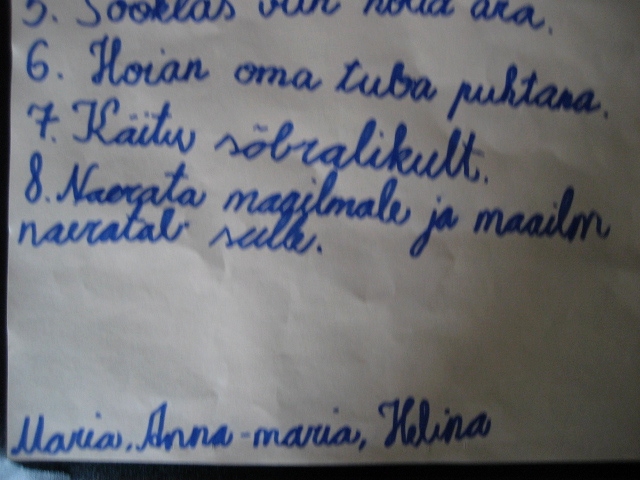 5. Sööklas viin nõud ära.
6. Hoian oma tuba puhtana.
7. Käitu sõbralikult.
8. Naerata maailmale ja maailm
naeratab sulle.
Maria, Anna-maria, Helina